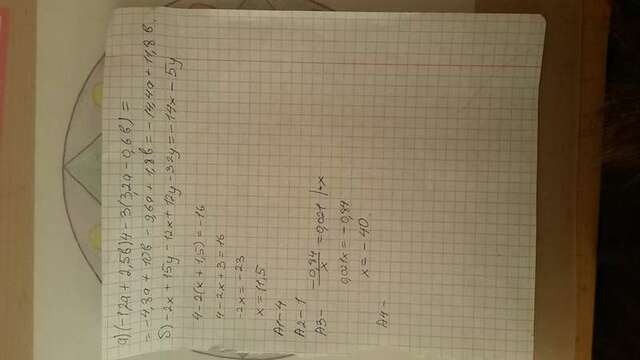 а) (-1,2а + 2,5в)4 - 3(3,2а - 0,6в) =
= -4,8а + 10в - 9,6а + 1,8в = -14,4а + 11,8в.
б) -2x + 15y - 12x + 12y - 32y = -14x - 5y
4 - 2(x + 1,5) = -16
4 - 2x + 3 = 16
-2x = -23
x = 11,5
А1 - 4
А2 - 1
А3 - -0,84/x = 0,021 |·x
0,021x = -0,84
x = -40
А4 -